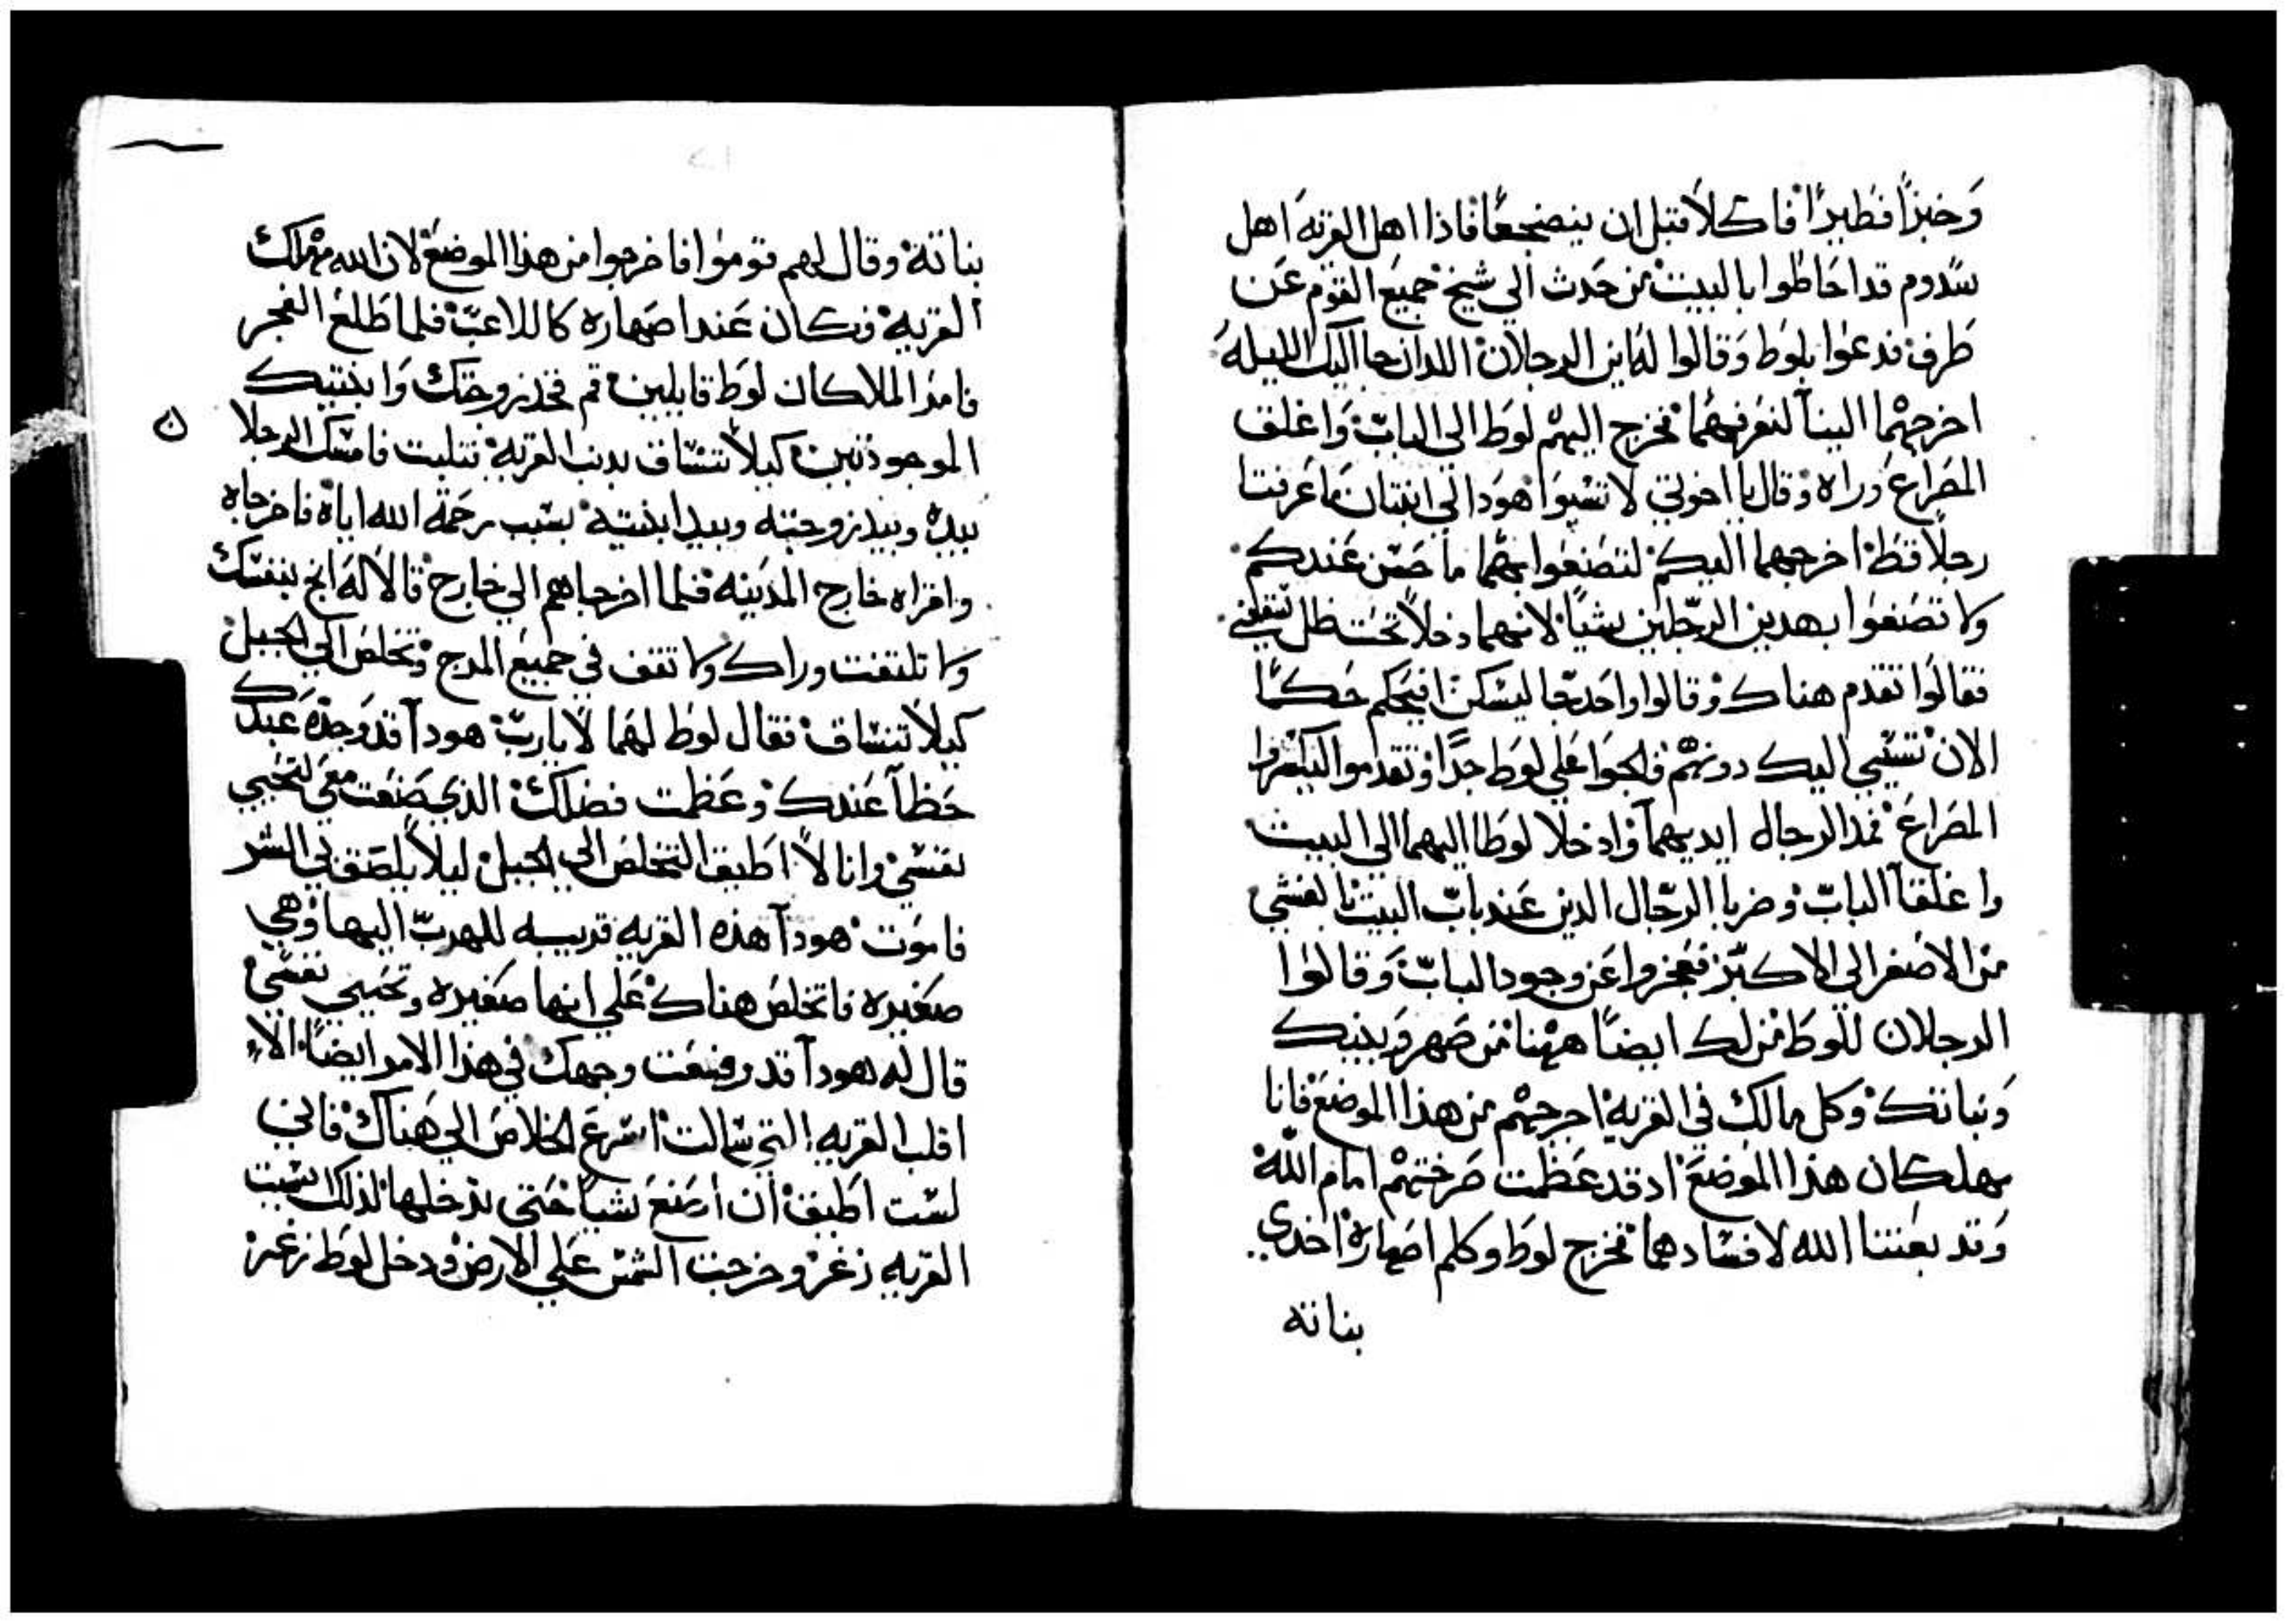 وَخبزاً فطيرًا فاكلاَ قبل ان ينضجعًا فاذا اهل القريَه اهل
سَدوم قد احَاطوا بالبيت من حَدث الي شيخ جميعَ القوم عَن
طَرف فدعوا بلوط وَقالوا لهُ اين الرجلان اللدان جا اليك الليله
اخرجهُما الينا لنعَرفهُما فخرج اليهُم لوط الى البابّ وَاغلق
المصَراعَ وراه وقال يا اخوتي لا تسَيوا هوَدا لي ابنتان ما عَرفتا
رجلاً قط اخرجهما اليكم لتصَنعَوا بهُما ما حسَن عَندكم
ولا تصَنعَوا بهدين الرجّلين شياً لانهما دخلاً تحت ظل سَقفي
فقالوَا تقدم هناك وقالوا واحَد جا ليسَكن افيحَكم حَكمًا
الان نسَيي اليك دونهُم والحوَا عَلي لوط جدًا وتقدموا ليكسَروا
المصَراعَ فمد الرجال ايديهماَ وادخلا لوطا اليهما الى البيت
واغلقا البابّ وضربا الرجّال الدين عَند بابّ البيت بالعَشي
من الاصَغر الي الاكبّر فعجزوا عَن وجود البابّ وَقالوا
الرجلان للوط من لك ايضاً ههُنا من صَهر وَبنيك
وَبناتك وكل مالك في القريه اخرجهُم من هذا الموضعَ فانا
مهلكان هذا الموَضعَ اد قد عَظمت صَرختهُم امام اللّه
وَقد بعَثنا الله لافسَادهما فخرج لوط وكلم اصَهاره اخدي
بناته
بناته وقال لهم قوموا فاخرجوا من هذا الموضعَ لان الله مهُلك
القريه فكان عَند اصَهاره كاللاعبّ فلما طَلعَ الفجر
فامرَ الملاكان لوَط قايلين قم فخد زوجتك وَابنتيك
الموجودتين كيلاَ تنسَاق بدنب القريه فتلبت فامسَك الرجلا
ن
بيده وبيد زوجته وبيد ابنتيه بسَبب رحَمة الله اياه فاخرجاه
واقراه خارج المدَينه فلما اخرجاهم الي خارج قالا لهَ انج بنفسَك
ولا تلتفت وراك ولا تقف في جميعَ المرج وتخلصَ الى الجبل
كيلاَ تنسَاق فقال لوط لهَما لا ياربّ هوداَ قد وَجدَ عَبدك
حَظاً عَندك وعَظمت فضلك الذي صَنعَت معَي لتحَيي
نفسَي وانا لاَ اطيق التخلصَ الي الجبل ليلاَ يلصَق بي الشر
فاموَت هوداَ هذه القريه قريبه للهربّ اليها وهي
صَغيره فاتخلصَ هناك عَلي انها صَغيره وتحَيي نفسَي
قال له هوداَ قد رفعَت وجهك في هذا الامر ايضاً الا
اقلب القريه التي سَالت اسَرعَ الخلاصَ الي هَناك فاني
لسَت اطيق ان اصَنعَ شياً حَتي تدخلها لذلك سَميت
القريه زغر وخرجت الشمسَ عَلي الارض ودخل لوط زغر